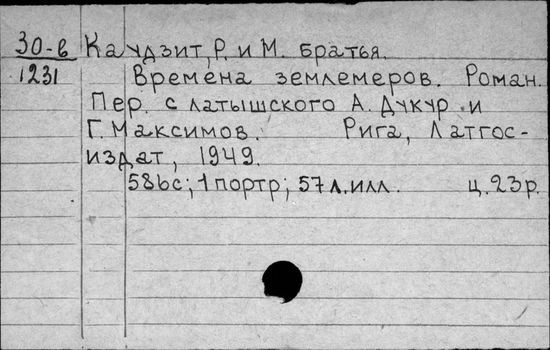 30-в Каудзит, Р. и М. братья.
1231 Времена землемеров. Роман.
Пер. с латышского А. Дукур и
Г. Максимов. Рига, Латгос-
издат, 1949.
586с; 1 портр; 57 л. илл. ц. 23 р.